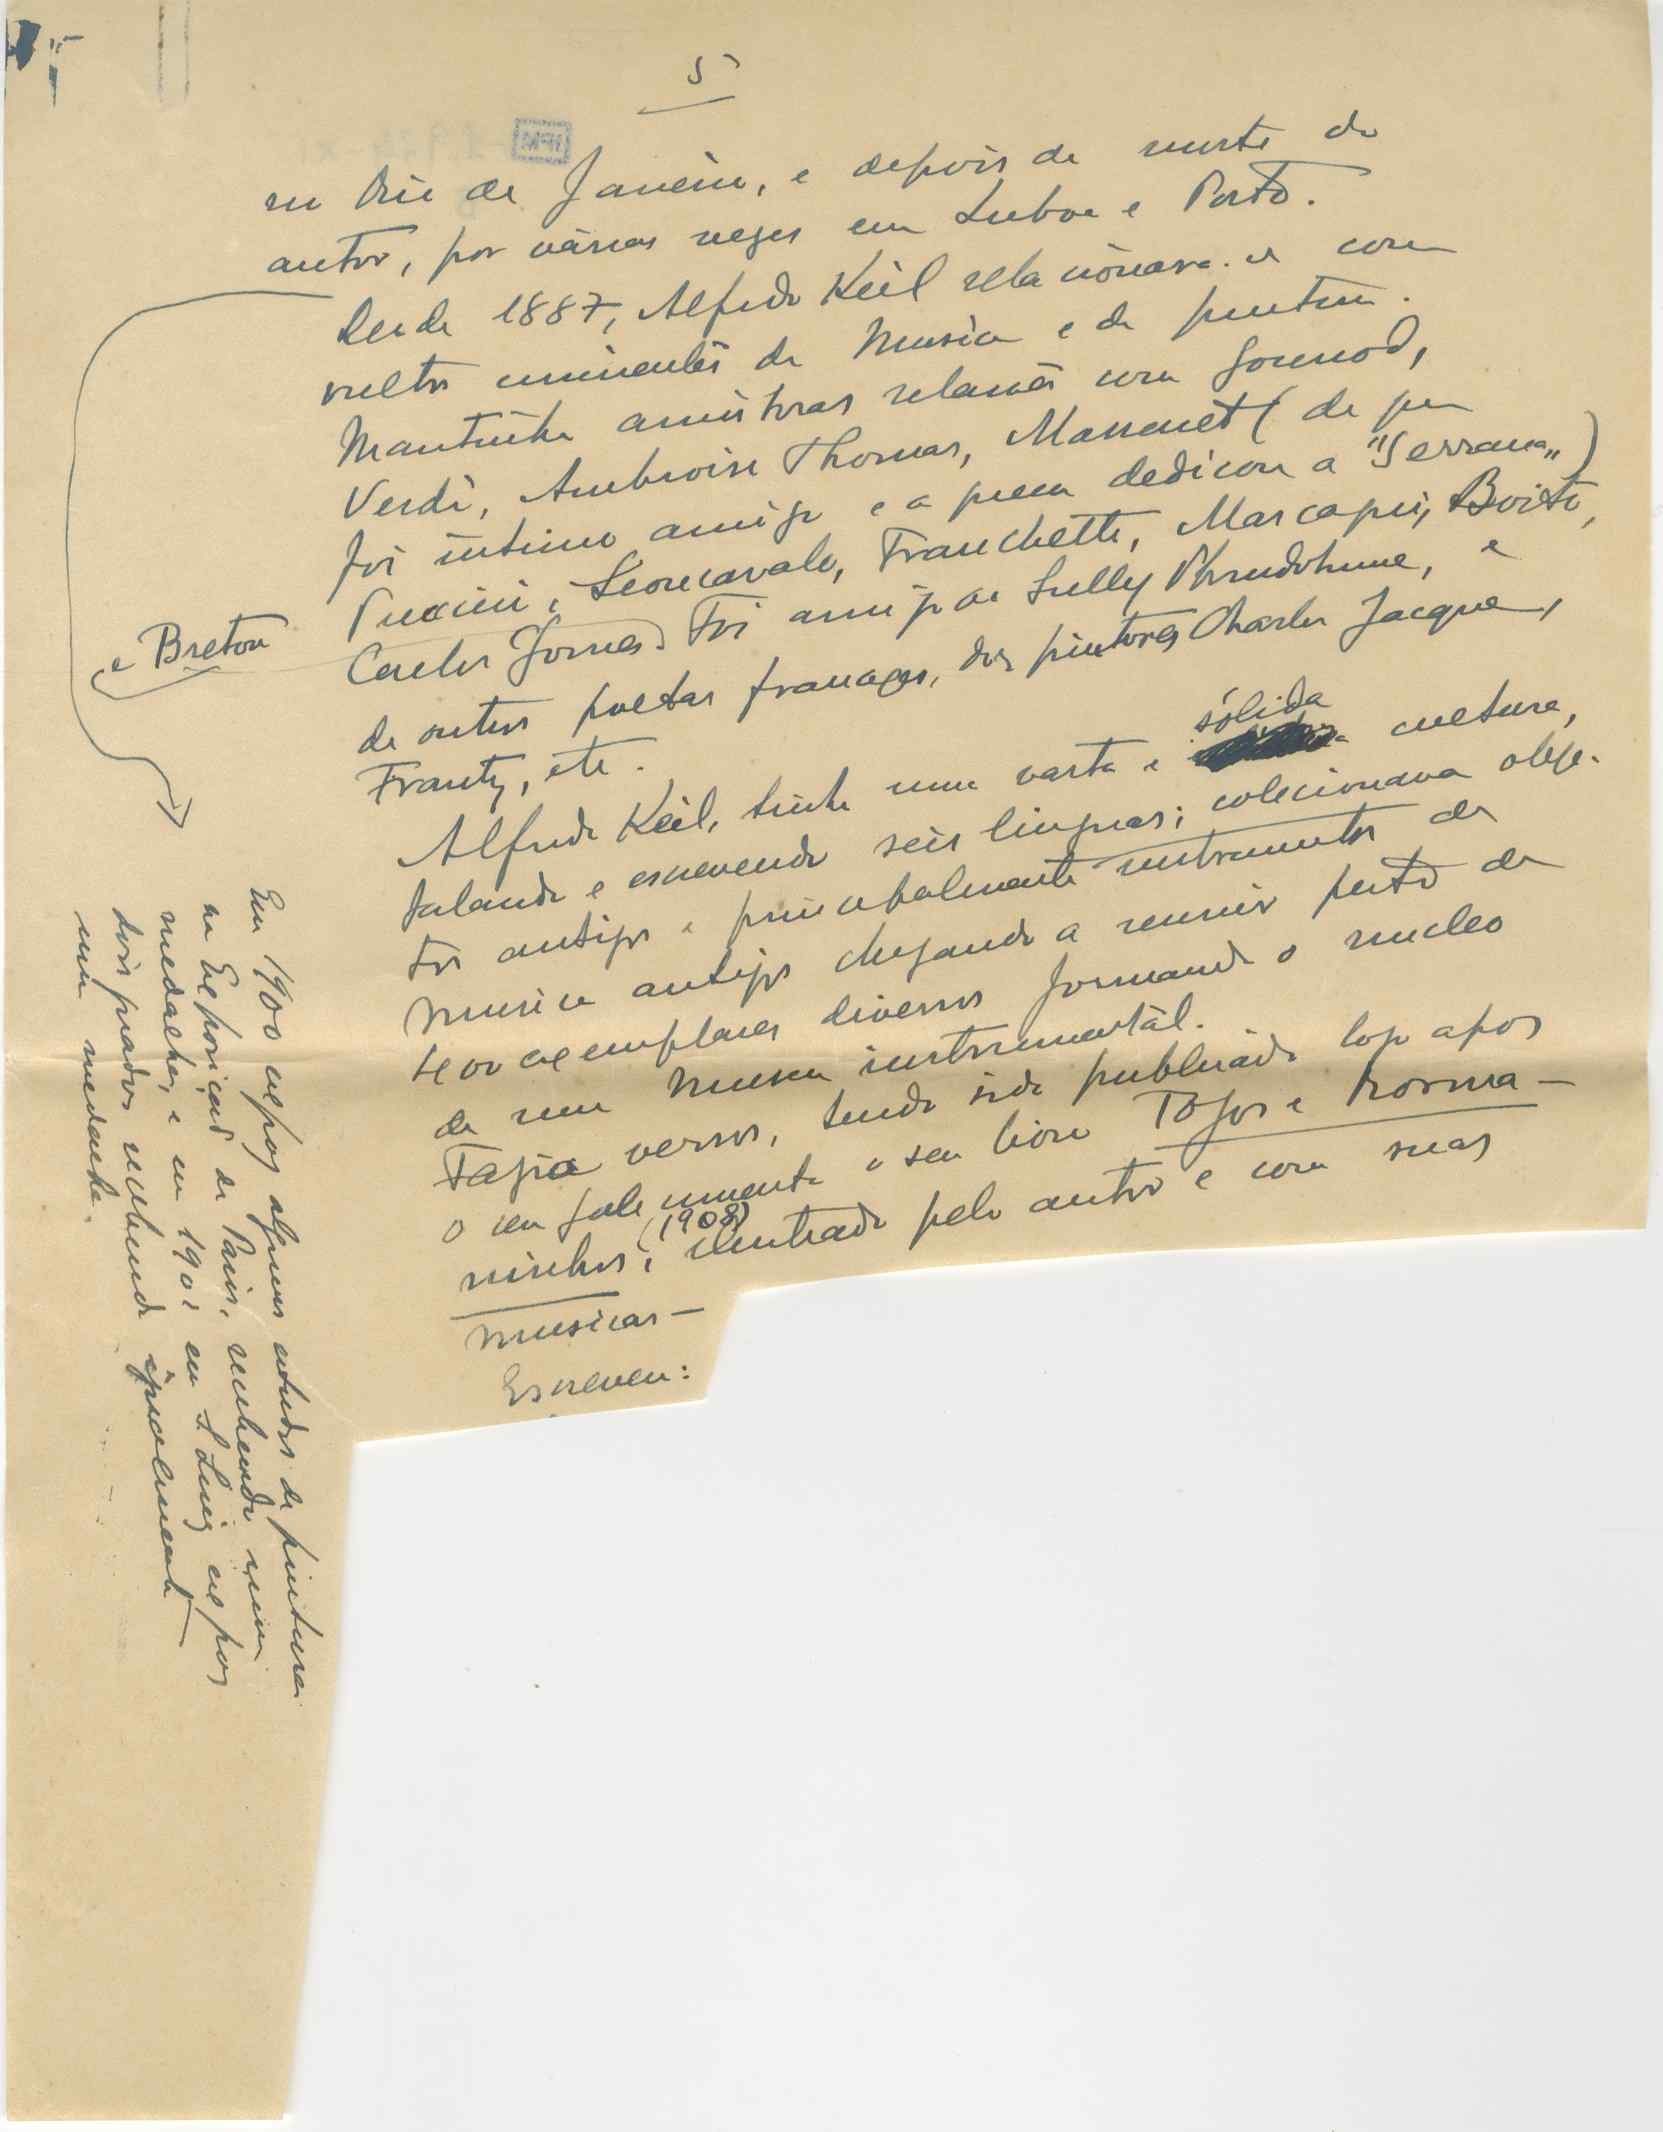 5
no Rio de Janeiro, e depois da morte do
autor, por várias vezes em Lisboa e Porto.
Desde 1887, Alfredo Keil relacionára-se com
vultos eminentes da Musica e da pintura.
Mantinha amistosas relações com Gounod,
Verdi, Ambroise Thomas, Massenet (de quem
foi intimo amigo e a quem dedicou a "Serrana„)
Puccini, Leoncavalo, Franchetti, Mascagni, Boito,
Carlos Gomes e Breton. Foi amigo de Sully Phrudohme, e
de outros poetas franceses, dos pintores Charles Jacque,
Frantz, etc.
Alfredo Keil, tinha uma vasta e sólida cultura,
falando e escrevendo seis linguas; colecionava obje-
tos antigos e principalmente instrumentos de
musica antigos chegando a reunir perto de
400 exemplares diversos formando o nucleo
de um Museu instrumentál.
Fazia versos, tendo sido publicádo logo apos
o seu falecimento o seu livro Tojos e Rosma-
ninhos, (1908) ilustrado pelo autor e com suas
musicas —
Escreveu:
Em 1900 expoz alguns estudos de pintura
na Exposição de Paris, recebendo uma
medalha, e em 190 em S. Luiz expoz
dois quadros recebendo igualmente
uma medalha.